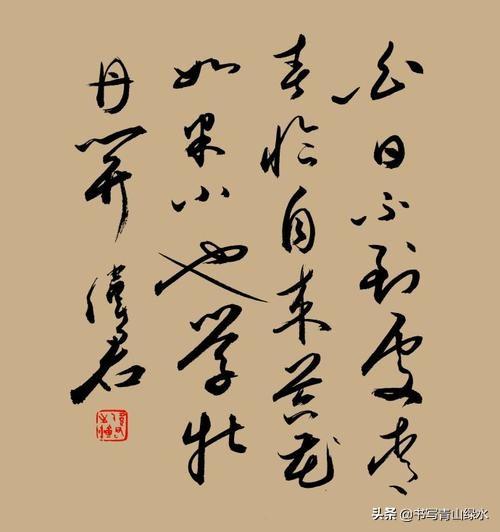 白日不到处青
春恰自来苔花
如米小也学牡
丹开
头条 @书写青山绿水